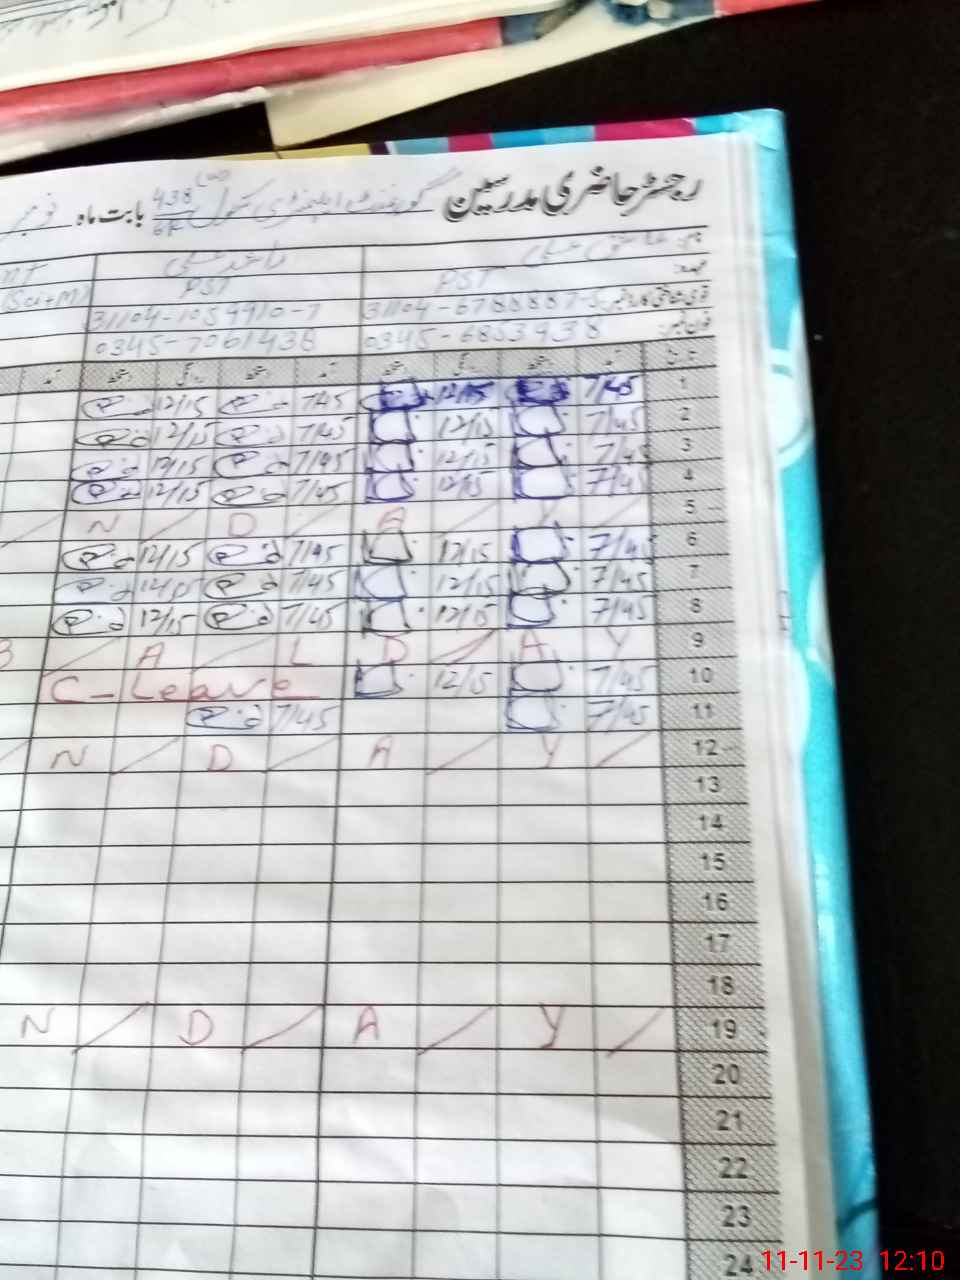 رجسٹر حاضری مدرسین گورنمنٹ ایلیمنٹری سکول 438 6R بابت ماہ نومبر
نام: عاشق علی راشد علی
عہدہ: PST PST
قومی شناختی کارڈ نمبر: 31104-1059910-7 (Sci+M)
فون نمبر: 0345-6853938 0345-7061438
تاریخ آمد دستخط روانگی دستخط آمد دستخط روانگی دستخط آمد
1 7/45 12/15 7/45 12/15
2 7/45 12/15 7/45 12/15
3 7/45 12/15 7/45 12/15
4 7/45 12/15 7/45 12/15
5 N / D / A / Y /
6 7/45 12/15 7/45 12/15
7 7/45 12/15 7/45 12/15
8 7/45 12/15 7/45 12/15
9 B / A / L D / A Y
10 7/45 12/15 C-Leave
11 7/45 7/45
12 N / D / A / Y /
13
14
15
16
17
18
19 N / D / A / Y /
20
21
22
23
24
11-11-23 12:10